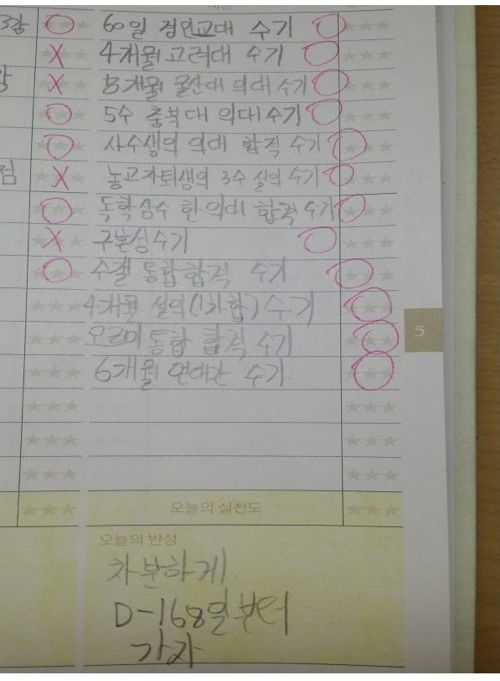 3강 60일 경인교대 수기
4개월 고려대 수기
8개월 울산대 의대 수기
5수 충북대 의대 수기
사수생의 의대 합격 수기
점 농고자퇴생의 3수 설의 수기
독학삼수 한의대 합격 수기
구본성 수기
수갤 통합 합격 수기
4개월 설의(1차합) 수기
오르비 통합 합격 수기
6개월 연대간 수기
5
오늘의 실천도
오늘의 반성
차분하게
D-168일부터
가자